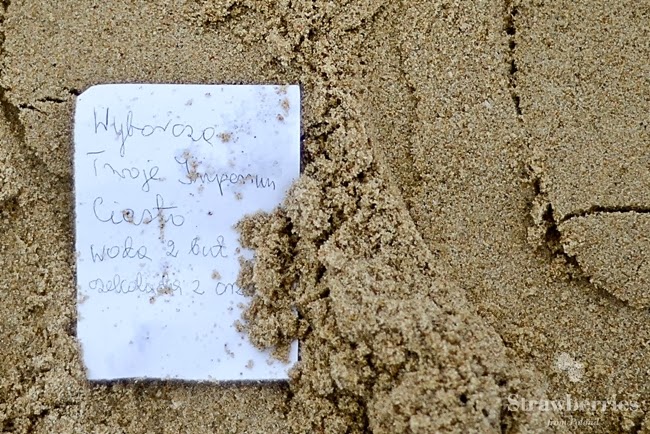 Wyborcza
Twoje Imperium
Ciasto
woda 2 but
2
Strawberries
from Poland